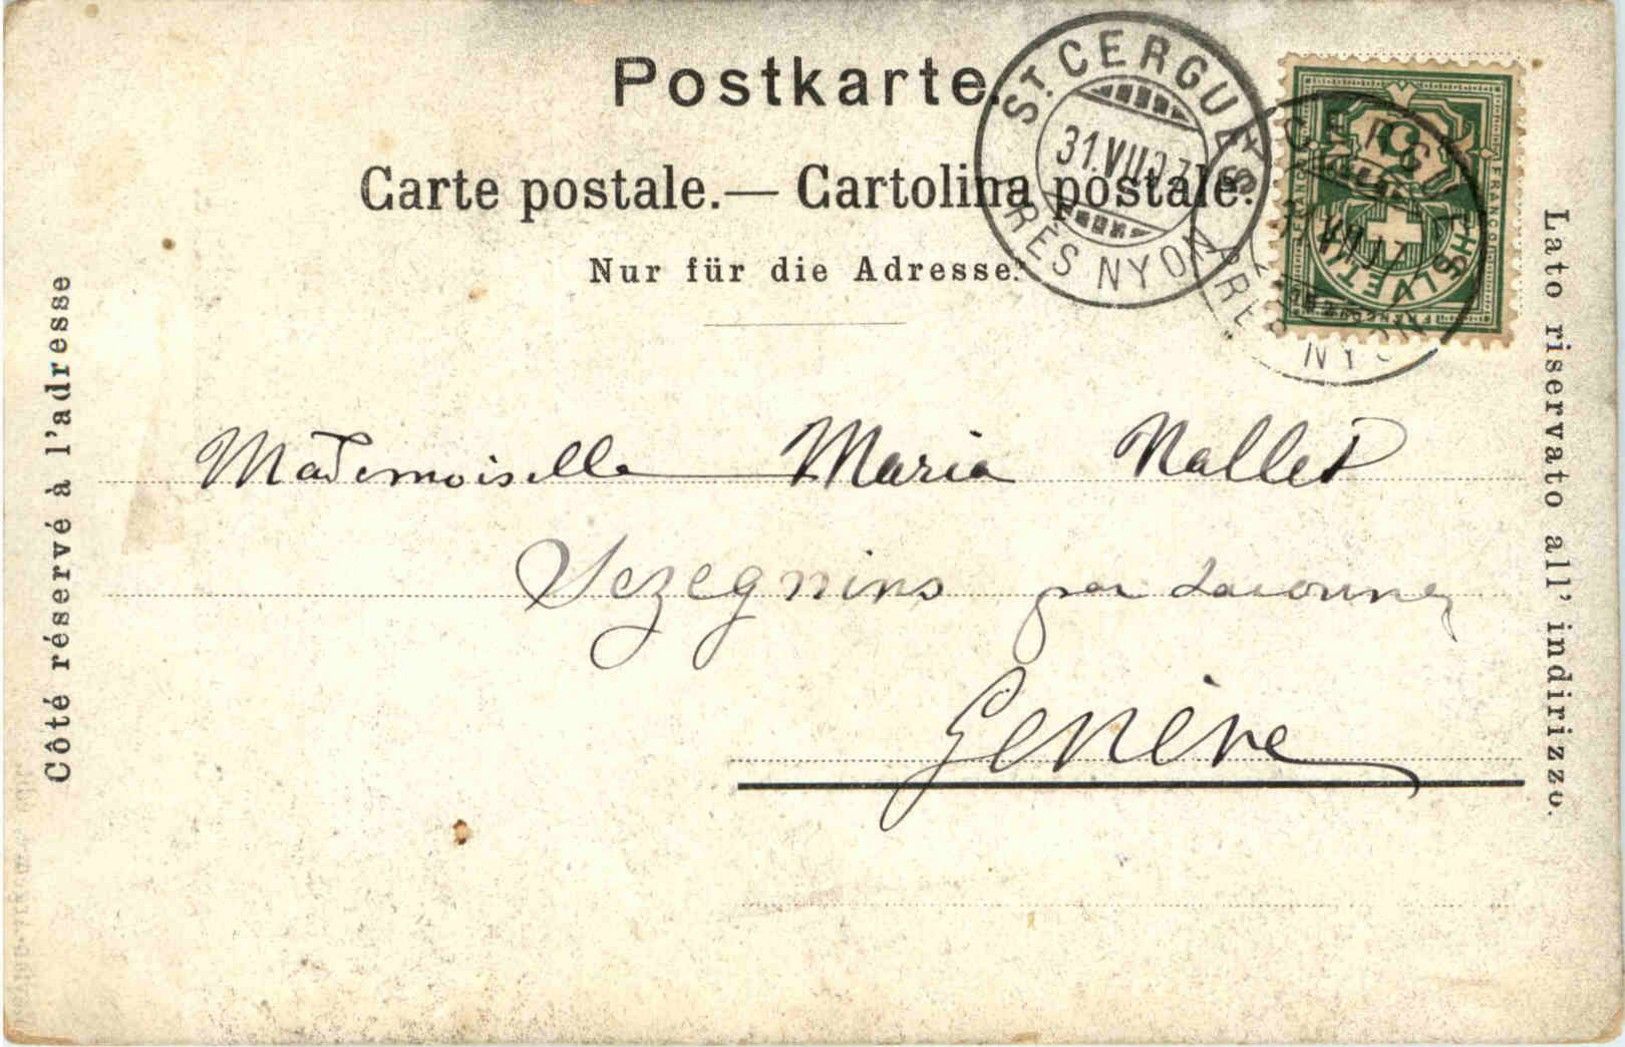 Postkarte.
Carte postale.— Cartolina postale.
Nur für die Adresse.
ST. CERGUES
31.VII.07
PRÈS NYON
5
HELVETIA
FRANCO
Côté réservé à l'adresse
Lato riservato all' indirizzo.
Mademoiselle Maria Nallet
Sezegnins par
Genève